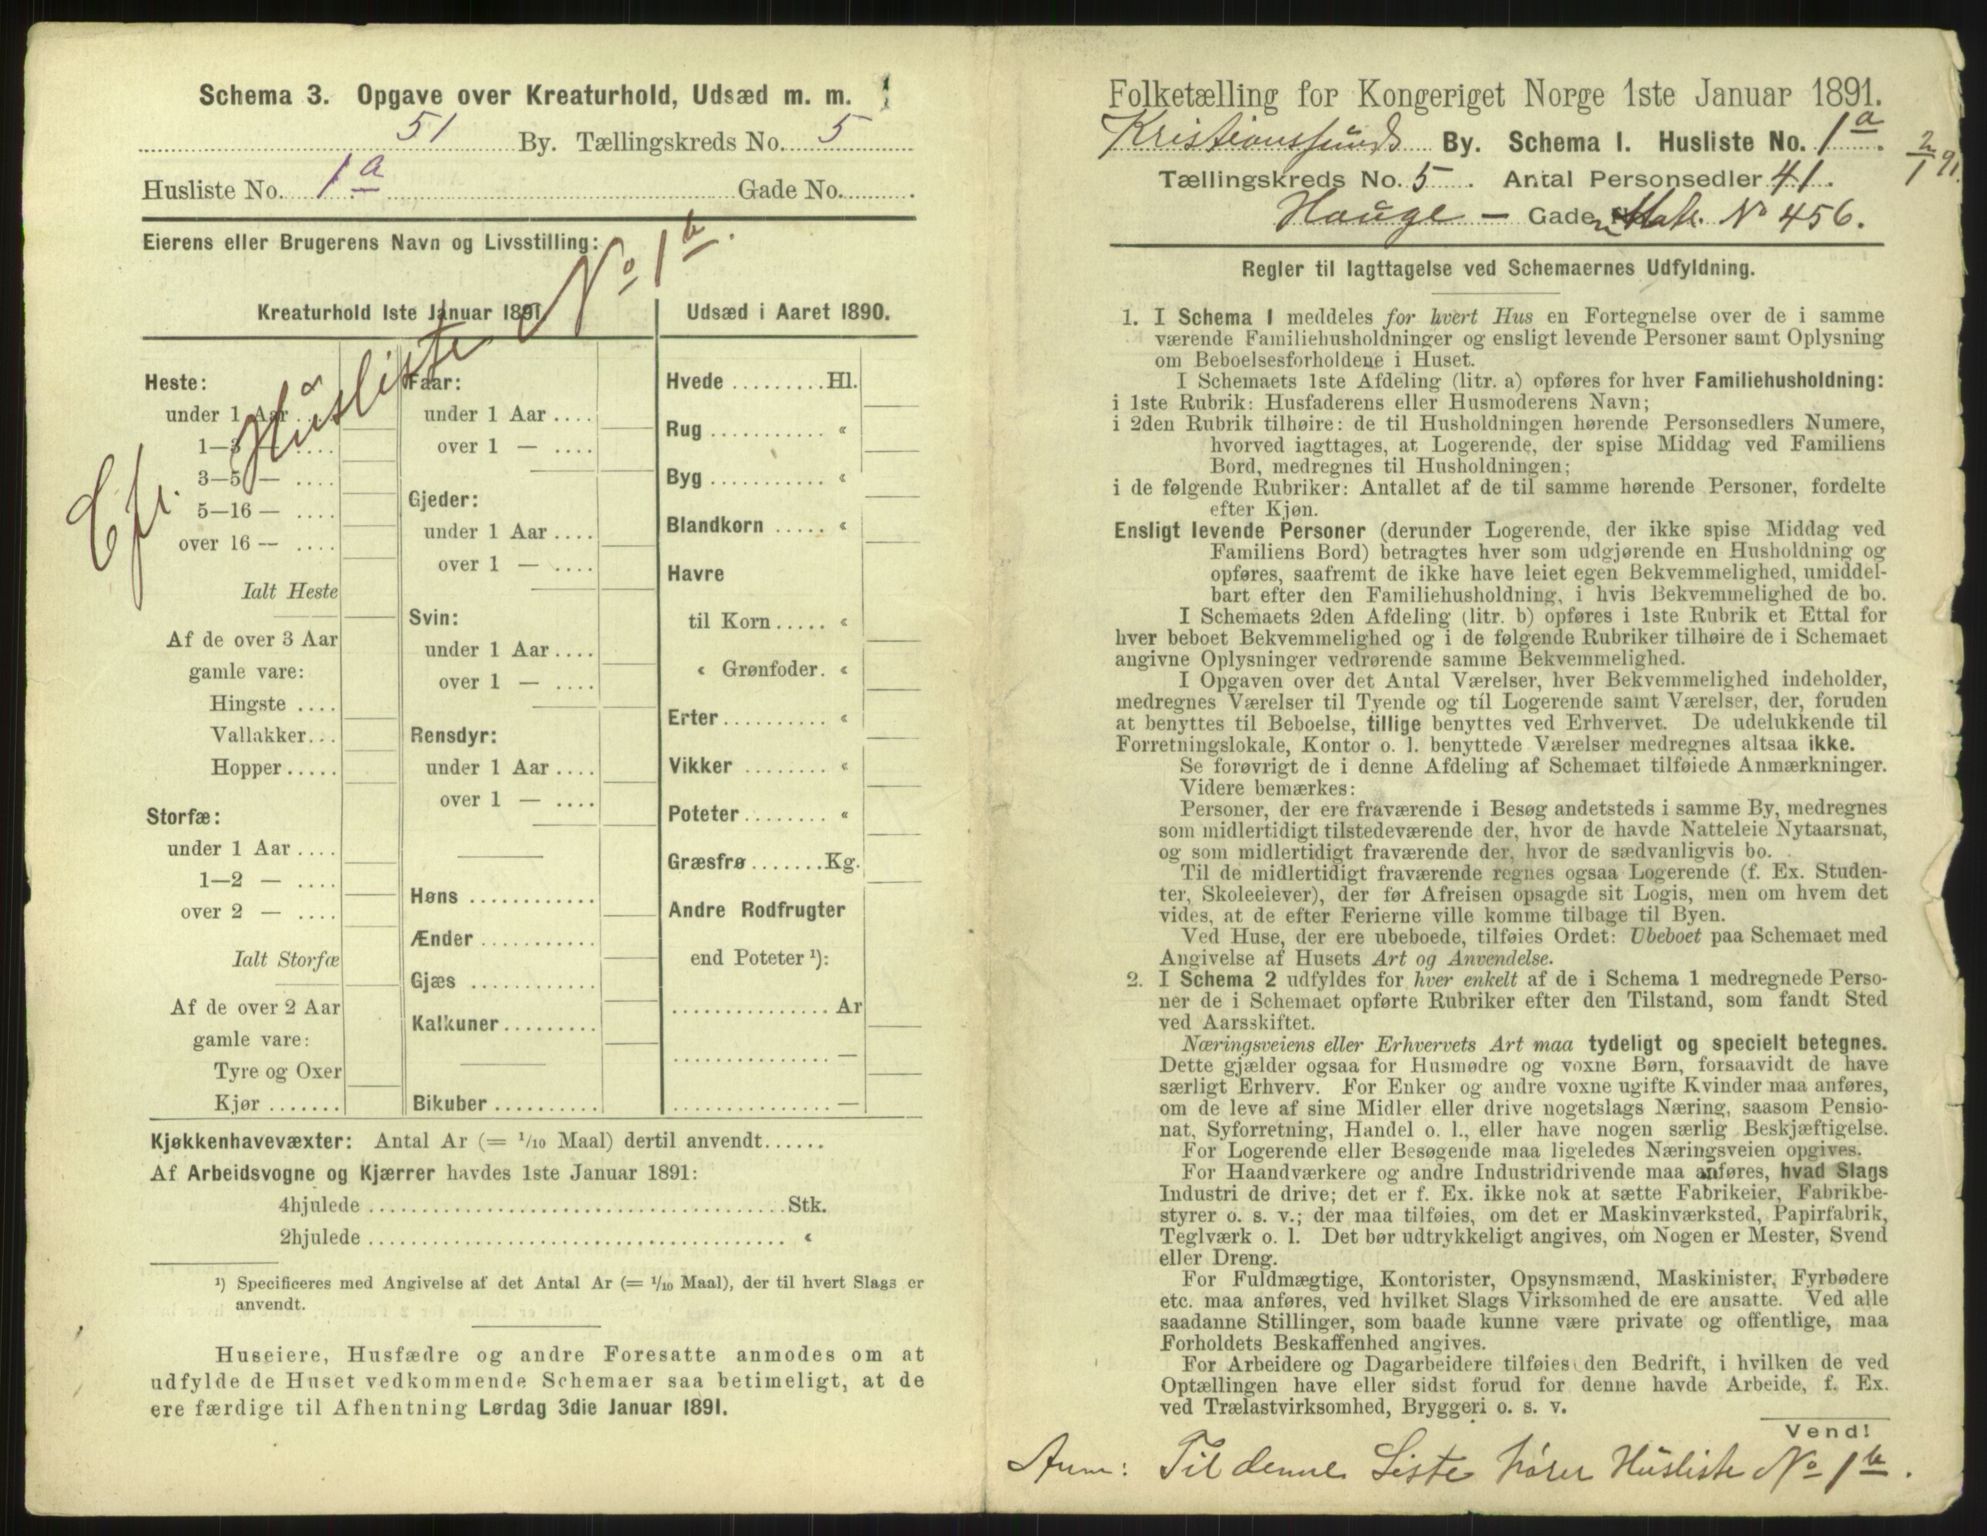 Schema 3. Opgave over Kreaturhold, Udsæd m. m.
51 By. Tællingskreds No. 5
Husliste No. 1a Gade No.
Eierens eller Brugerens Navn og Livsstilling:
Cfr. Husliste No 1b.
Kreaturhold 1ste Januar 1891.
Heste:
under 1 Aar ....
1—3 — ....
3—5 — ....
5—16 — ....
over 16 — ....
Ialt Heste
Af de over 3 Aar
gamle vare:
Hingste ....
Vallakker...
Hopper.....
Storfæ:
under 1 Aar ....
1—2 — ....
over 2 — ....
Ialt Storfæ
Af de over 2 Aar
gamle vare:
Tyre og Oxer
Kjør .......
Faar:
under 1 Aar ....
over 1 — ....
Gjeder:
under 1 Aar ....
over 1 — ....
Svin:
under 1 Aar ....
over 1 — ....
Rensdyr:
under 1 Aar ....
over 1 — ....
Høns ............
Ænder ...........
Gjæs ............
Kalkuner.........
Bikuber ..........
Udsæd i Aaret 1890.
Hvede .........Hl.
Rug ........... «
Byg ........... «
Blandkorn ..... «
Havre
til Korn..... «
« Grønfoder. «
Erter.......... «
Vikker ........ «
Poteter ........ «
Græsfrø .......Kg.
Andre Rodfrugter
end Poteter ¹):
............... Ar
............... —
............... —
Kjøkkenhavevæxter: Antal Ar (= 1/10 Maal) dertil anvendt......
Af Arbeidsvogne og Kjærrer havdes 1ste Januar 1891:
4hjulede ....................................Stk.
2hjulede .................................... «
¹) Specificeres med Angivelse af det Antal Ar (= 1/10 Maal), der til hvert Slags er
anvendt.
Huseiere, Husfædre og andre Foresatte anmodes om at
udfylde de Huset vedkommende Schemaer saa betimeligt, at de
ere færdige til Afhentning Lørdag 3die Januar 1891.
Folketælling for Kongeriget Norge 1ste Januar 1891.
Kristianssunds By. Schema I. Husliste No. 1a.
2/1 91.
Tællingskreds No. 5. Antal Personsedler 41.
Hauge — Gade Matr. No 456.
Regler til Iagttagelse ved Schemaernes Udfyldning.
1. I Schema I meddeles for hvert Hus en Fortegnelse over de i samme
værende Familiehusholdninger og ensligt levende Personer samt Oplysning
om Beboelsesforholdene i Huset.
I Schemaets 1ste Afdeling (litr. a) opføres for hver Familiehusholdning:
i 1ste Rubrik: Husfaderens eller Husmoderens Navn;
i 2den Rubrik tilhøire: de til Husholdningen hørende Personsedlers Numere,
hvorved iagttages, at Logerende, der spise Middag ved Familiens
Bord, medregnes til Husholdningen;
i de følgende Rubriker: Antallet af de til samme hørende Personer, fordelte
efter Kjøn.
Ensligt levende Personer (derunder Logerende, der ikke spise Middag ved
Familiens Bord) betragtes hver som udgjørende en Husholdning og
opføres, saafremt de ikke have leiet egen Bekvemmelighed, umiddel-
bart efter den Familiehusholdning, i hvis Bekvemmelighed de bo.
I Schemaets 2den Afdeling (litr. b) opføres i 1ste Rubrik et Ettal for
hver beboet Bekvemmelighed og i de følgende Rubriker tilhøire de i Schemaet
angivne Oplysninger vedrørende samme Bekvemmelighed.
I Opgaven over det Antal Værelser, hver Bekvemmelighed indeholder,
medregnes Værelser til Tyende og til Logerende samt Værelser, der, foruden
at benyttes til Beboelse, tillige benyttes ved Erhvervet. De udelukkende til
Forretningslokale, Kontor o. l. benyttede Værelser medregnes altsaa ikke.
Se forøvrigt de i denne Afdeling af Schemaet tilføiede Anmærkninger.
Videre bemærkes:
Personer, der ere fraværende i Besøg andetsteds i samme By, medregnes
som midlertidigt tilstedeværende der, hvor de havde Natteleie Nytaarsnat,
og som midlertidigt fraværende der, hvor de sædvanligvis bo.
Til de midlertidigt fraværende regnes ogsaa Logerende (f. Ex. Studen-
ter, Skoleelever), der før Afreisen opsagde sit Logis, men om hvem det
vides, at de efter Ferierne ville komme tilbage til Byen.
Ved Huse, der ere ubeboede, tilføies Ordet: Ubeboet paa Schemaet med
Angivelse af Husets Art og Anvendelse.
2. I Schema 2 udfyldes for hver enkelt af de i Schema 1 medregnede Perso-
ner de i Schemaet opførte Rubriker efter den Tilstand, som fandt Sted
ved Aarsskiftet.
Næringsveiens eller Erhvervets Art maa tydeligt og specielt betegnes.
Dette gjælder ogsaa for Husmødre og voxne Børn, forsaavidt de have
særligt Erhverv. For Enker og andre voxne ugifte Kvinder maa anføres,
om de leve af sine Midler eller drive nogetslags Næring, saasom Pensio-
nat, Syforretning, Handel o. l., eller have nogen særlig Beskjæftigelse.
For Logerende eller Besøgende maa ligeledes Næringsveien opgives.
For Haandværkere og andre Industridrivende maa anføres, hvad Slags
Industri de drive; det er f. Ex. ikke nok at sætte Fabrikeier, Fabrikbe-
styrer o. s. v.; der maa tilføies, om det er Maskinværksted, Papirfabrik,
Teglværk o. l. Det bør udtrykkeligt angives, om Nogen er Mester, Svend
eller Dreng.
For Fuldmægtige, Kontorister, Opsynsmænd, Maskinister, Fyrbødere
etc. maa anføres, ved hvilket Slags Virksomhed de ere ansatte. Ved alle
saadanne Stillinger, som baade kunne være private og offentlige, maa
Forholdets Beskaffenhed angives.
For Arbeidere og Dagarbeidere tilføies den Bedrift, i hvilken de ved
Optællingen have eller sidst forud for denne havde Arbeide, f. Ex.
ved Trælastvirksomhed, Bryggeri o. s. v.
Vend!
Anm: Til denne Liste hører Husliste No 1b.